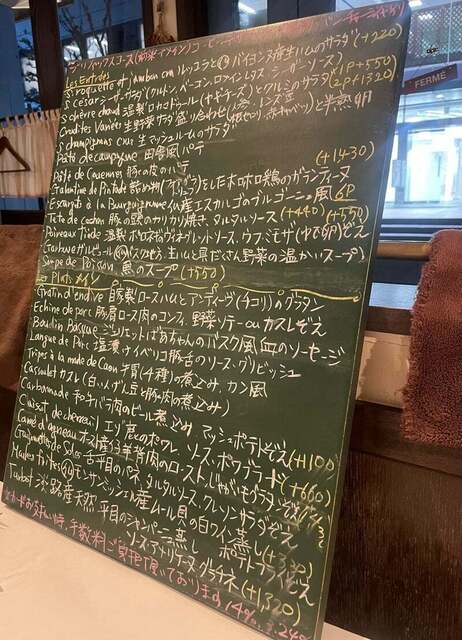 Les Entrées
S roquette et jambon cru ルッコラと バイヨンヌ産生ハムのサラダ (+220)
S césar シーザーサラダ (クルトン、ベーコン、ロメインレタス、シーザーソース) 1P+550
S chèvre chaud 温製ロカマドゥール(ヤギチーズ)とクルミのサラダ 2P+1320
Crudités Variées 生野菜サラダ盛り合わせ(人参、レンズ豆、根セロリ、赤キャベツ)と半熟卵
S champignons crus 生マッシュルームのサラダ
Pâté de campagne 田舎風パテ
Pâté de Couennes 豚の皮のパテ
Galantine de Pintade をしたホロホロ鶏のガランティーヌ (+1430)
Escargots à la Bourguignonne 産エスカルゴのブルゴーニュ風 6P
Tête de Cochon 豚の頭のカリカリ焼き、タルタルソース (+440) (+550)
Poireaux tiède 温製ポロネギヴィネグレットソース、ウフミモザ(ゆで卵)ぞえ
Garbure ガルビュール (バスクもち、生ハムと具だくさん野菜の温かいスープ)
Soupe de Poisson 魚のスープ (+550)
Les Plats メイン
Gratin d'endive 自家製ロースハムとアンディーヴ(チコリ)のグラタン
Echine de porc 豚肩ロース肉のコンフィ、野菜ソテー ou カスレぞえ
Boudin Basque ジュリエットばあちゃんのバスク風血のソーセージ
Langue de Porc 塩漬けイベリコ豚舌のソース・グリビッシュ
Tripes à la mode de Caen 牛胃(4種)の煮込み、カン風
Cassoulet カスレ(白いんげん豆と豚肉の煮込み)
Carbonnade 和牛バラ肉のビール煮込み マッシュポテトぞえ
Cuissot de chevreuil エゾ鹿のポワレ、ソース・ポワブラード (+1100)
Carré d'agneau 仔羊背肉のロースト、じゃがいもグラタンぞえ (+660)
Goujonnette de Soles 舌平目のパネ、タルタルソース、クレソンサラダぞえ
Moules frites モンサンミッシェル産ムール貝の白ワイン蒸し ポテトフライぞえ
Turbot 淡路産天然平目のシャンパーニュ蒸し
ソース・アメリケーヌ・グラチネ (+1,320)
カードお支払い時、手数料ご負担頂いております
FERMÉ